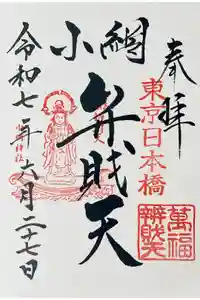 奉拝
東京日本橋
小網
弁財天
萬福
辨財天
小網神社
令和七年六月二十七日